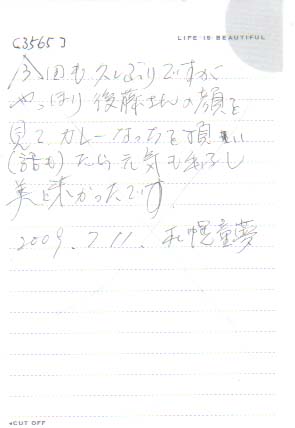 [3565]
LIFE IS BEAUTIFUL
今回も久しぶりですが
やっぱり後藤さんの顔を
見て カレーなったを頂い
(話も)たら元気も
美味かったです
2009.7.11. 札幌童夢
◂CUT OFF